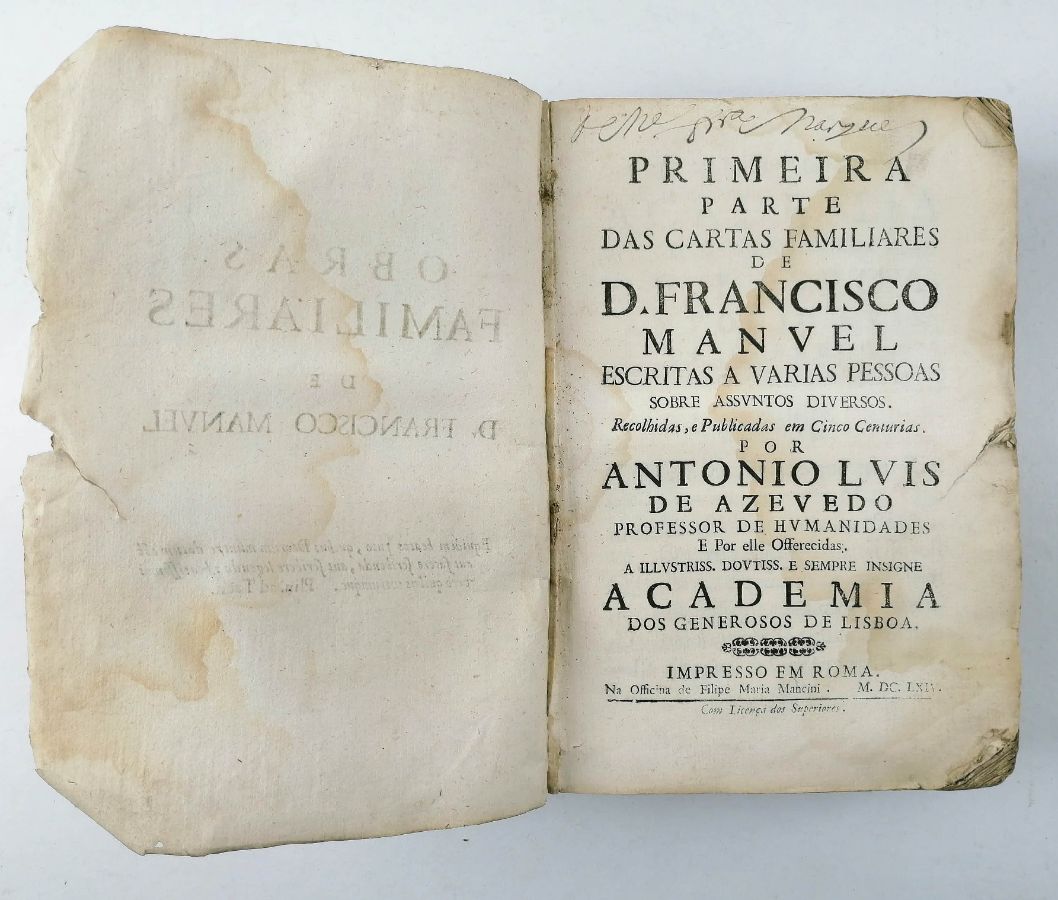 OBRAS
FAMILIARES
DE
D. FRANCISCO MANVEL
PRIMEIRA
PARTE
DAS CARTAS FAMILIARES
DE
D. FRANCISCO
MANVEL
ESCRITAS A VARIAS PESSOAS
SOBRE ASSVNTOS DIVERSOS.
Recolhidas, e Publicadas em Cinco Centurias.
POR
ANTONIO LVIS
DE AZEVEDO
PROFESSOR DE HVMANIDADES
E Por elle Offerecidas,
A ILLVSTRISS. DOVTISS. E SEMPRE INSIGNE
ACADEMIA
DOS GENEROSOS DE LISBOA.
IMPRESSO EM ROMA.
Na Officina de Filipe Maria Mancini. M. DC. LXIV.
Com Licença dos Superiores.